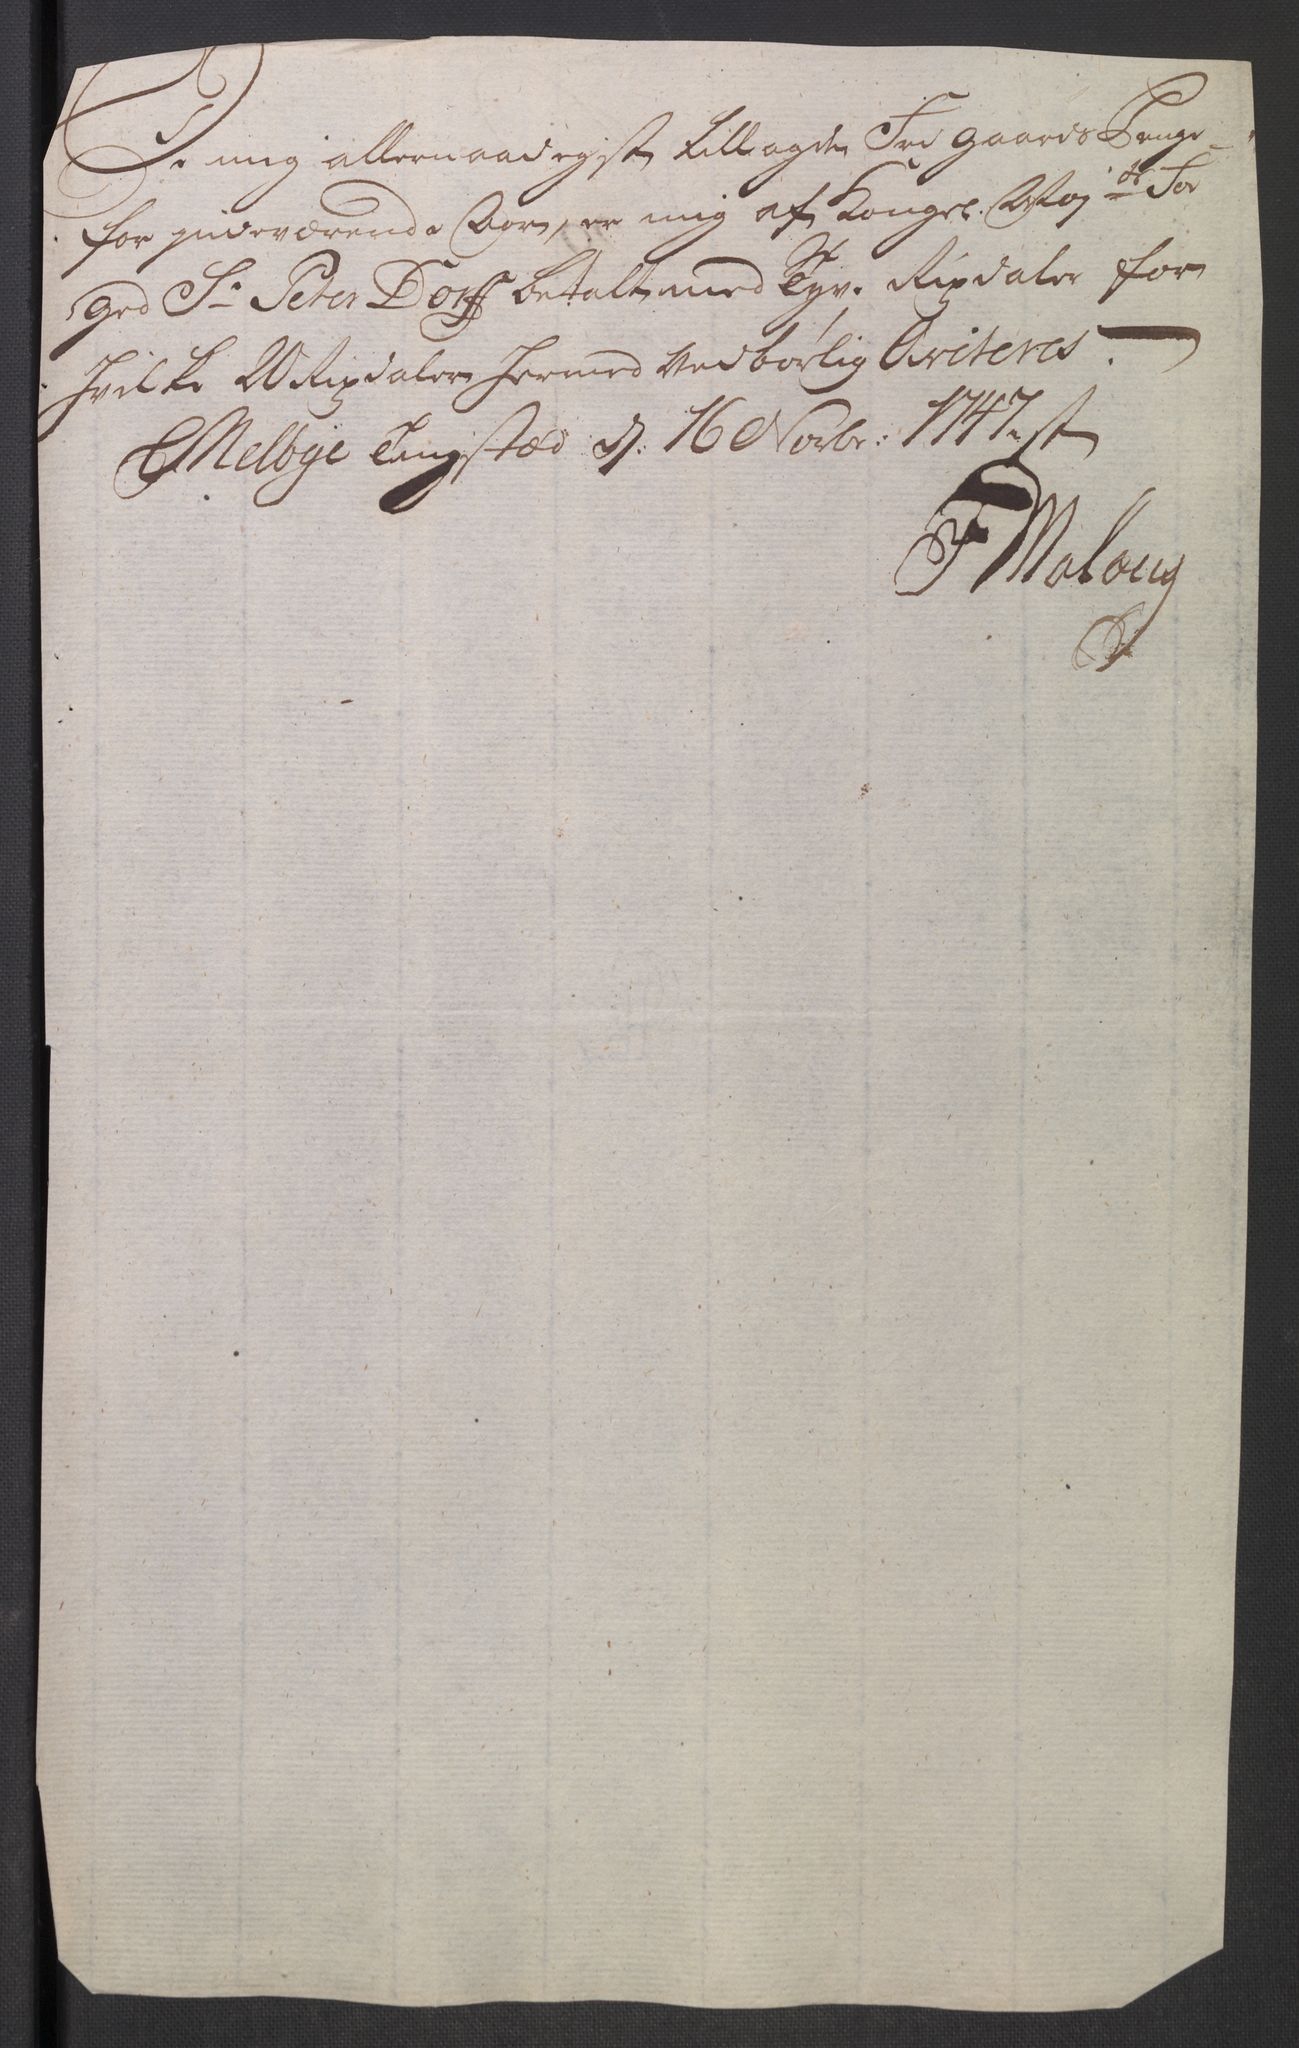 De mig allernaadigst tillagde Frie gaards Penge
for indeværende Aar, er mig af Kongel: May:ts Fo
ged Sr Peter Dorff betalt med Tyve Rixdaler for
hvilke 20 Rixdaler hermed vedbørlig Qviteres.
Melbye Tingstæd d: 16 Novbr: 1747
F Maloug